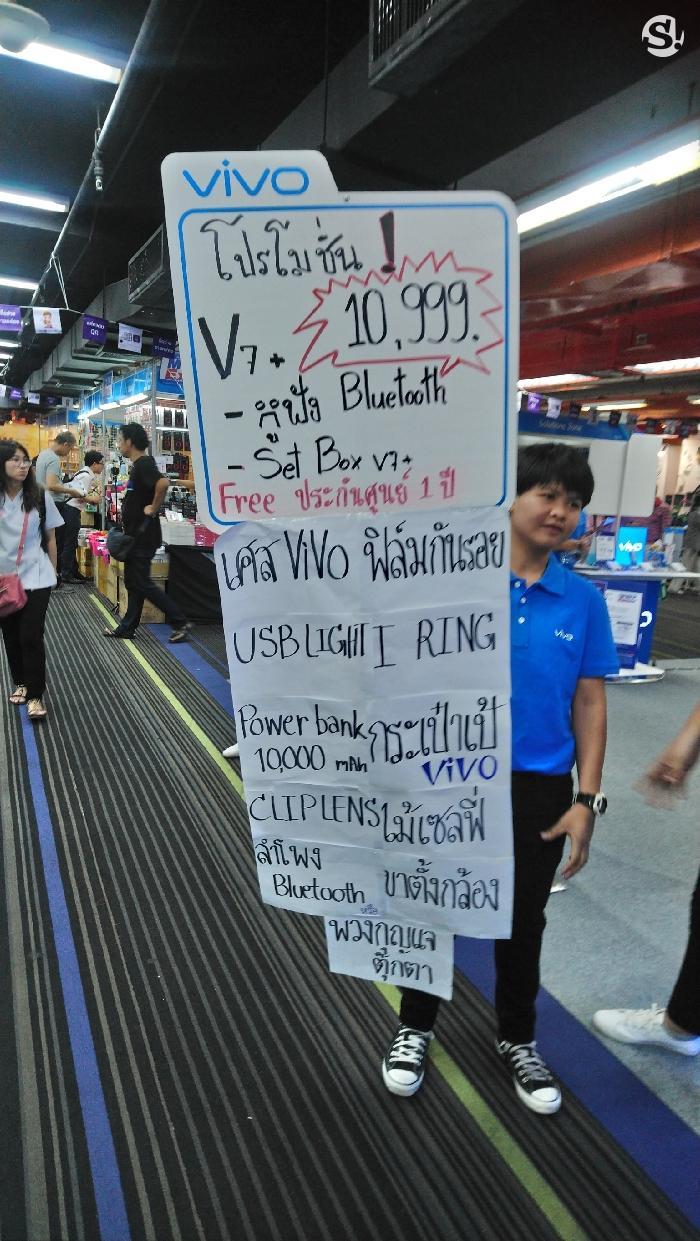 S!
vivo
โปรโมชั่น!
V7+ 10,999.
- หูฟัง Bluetooth
- Set Box V7+
Free ประกันศูนย์ 1 ปี
เคส ViVo ฟิล์มกันรอย
USB LIGHT I RING
Power bank 10,000 mAh กระเป๋าเป้ ViVO
CLIP LENS ไม้เซลฟี่
ลำโพง Bluetooth ขาตั้งกล้อง
หรือ
พวงกุญแจ
ตุ๊กตา
vivo
vivo